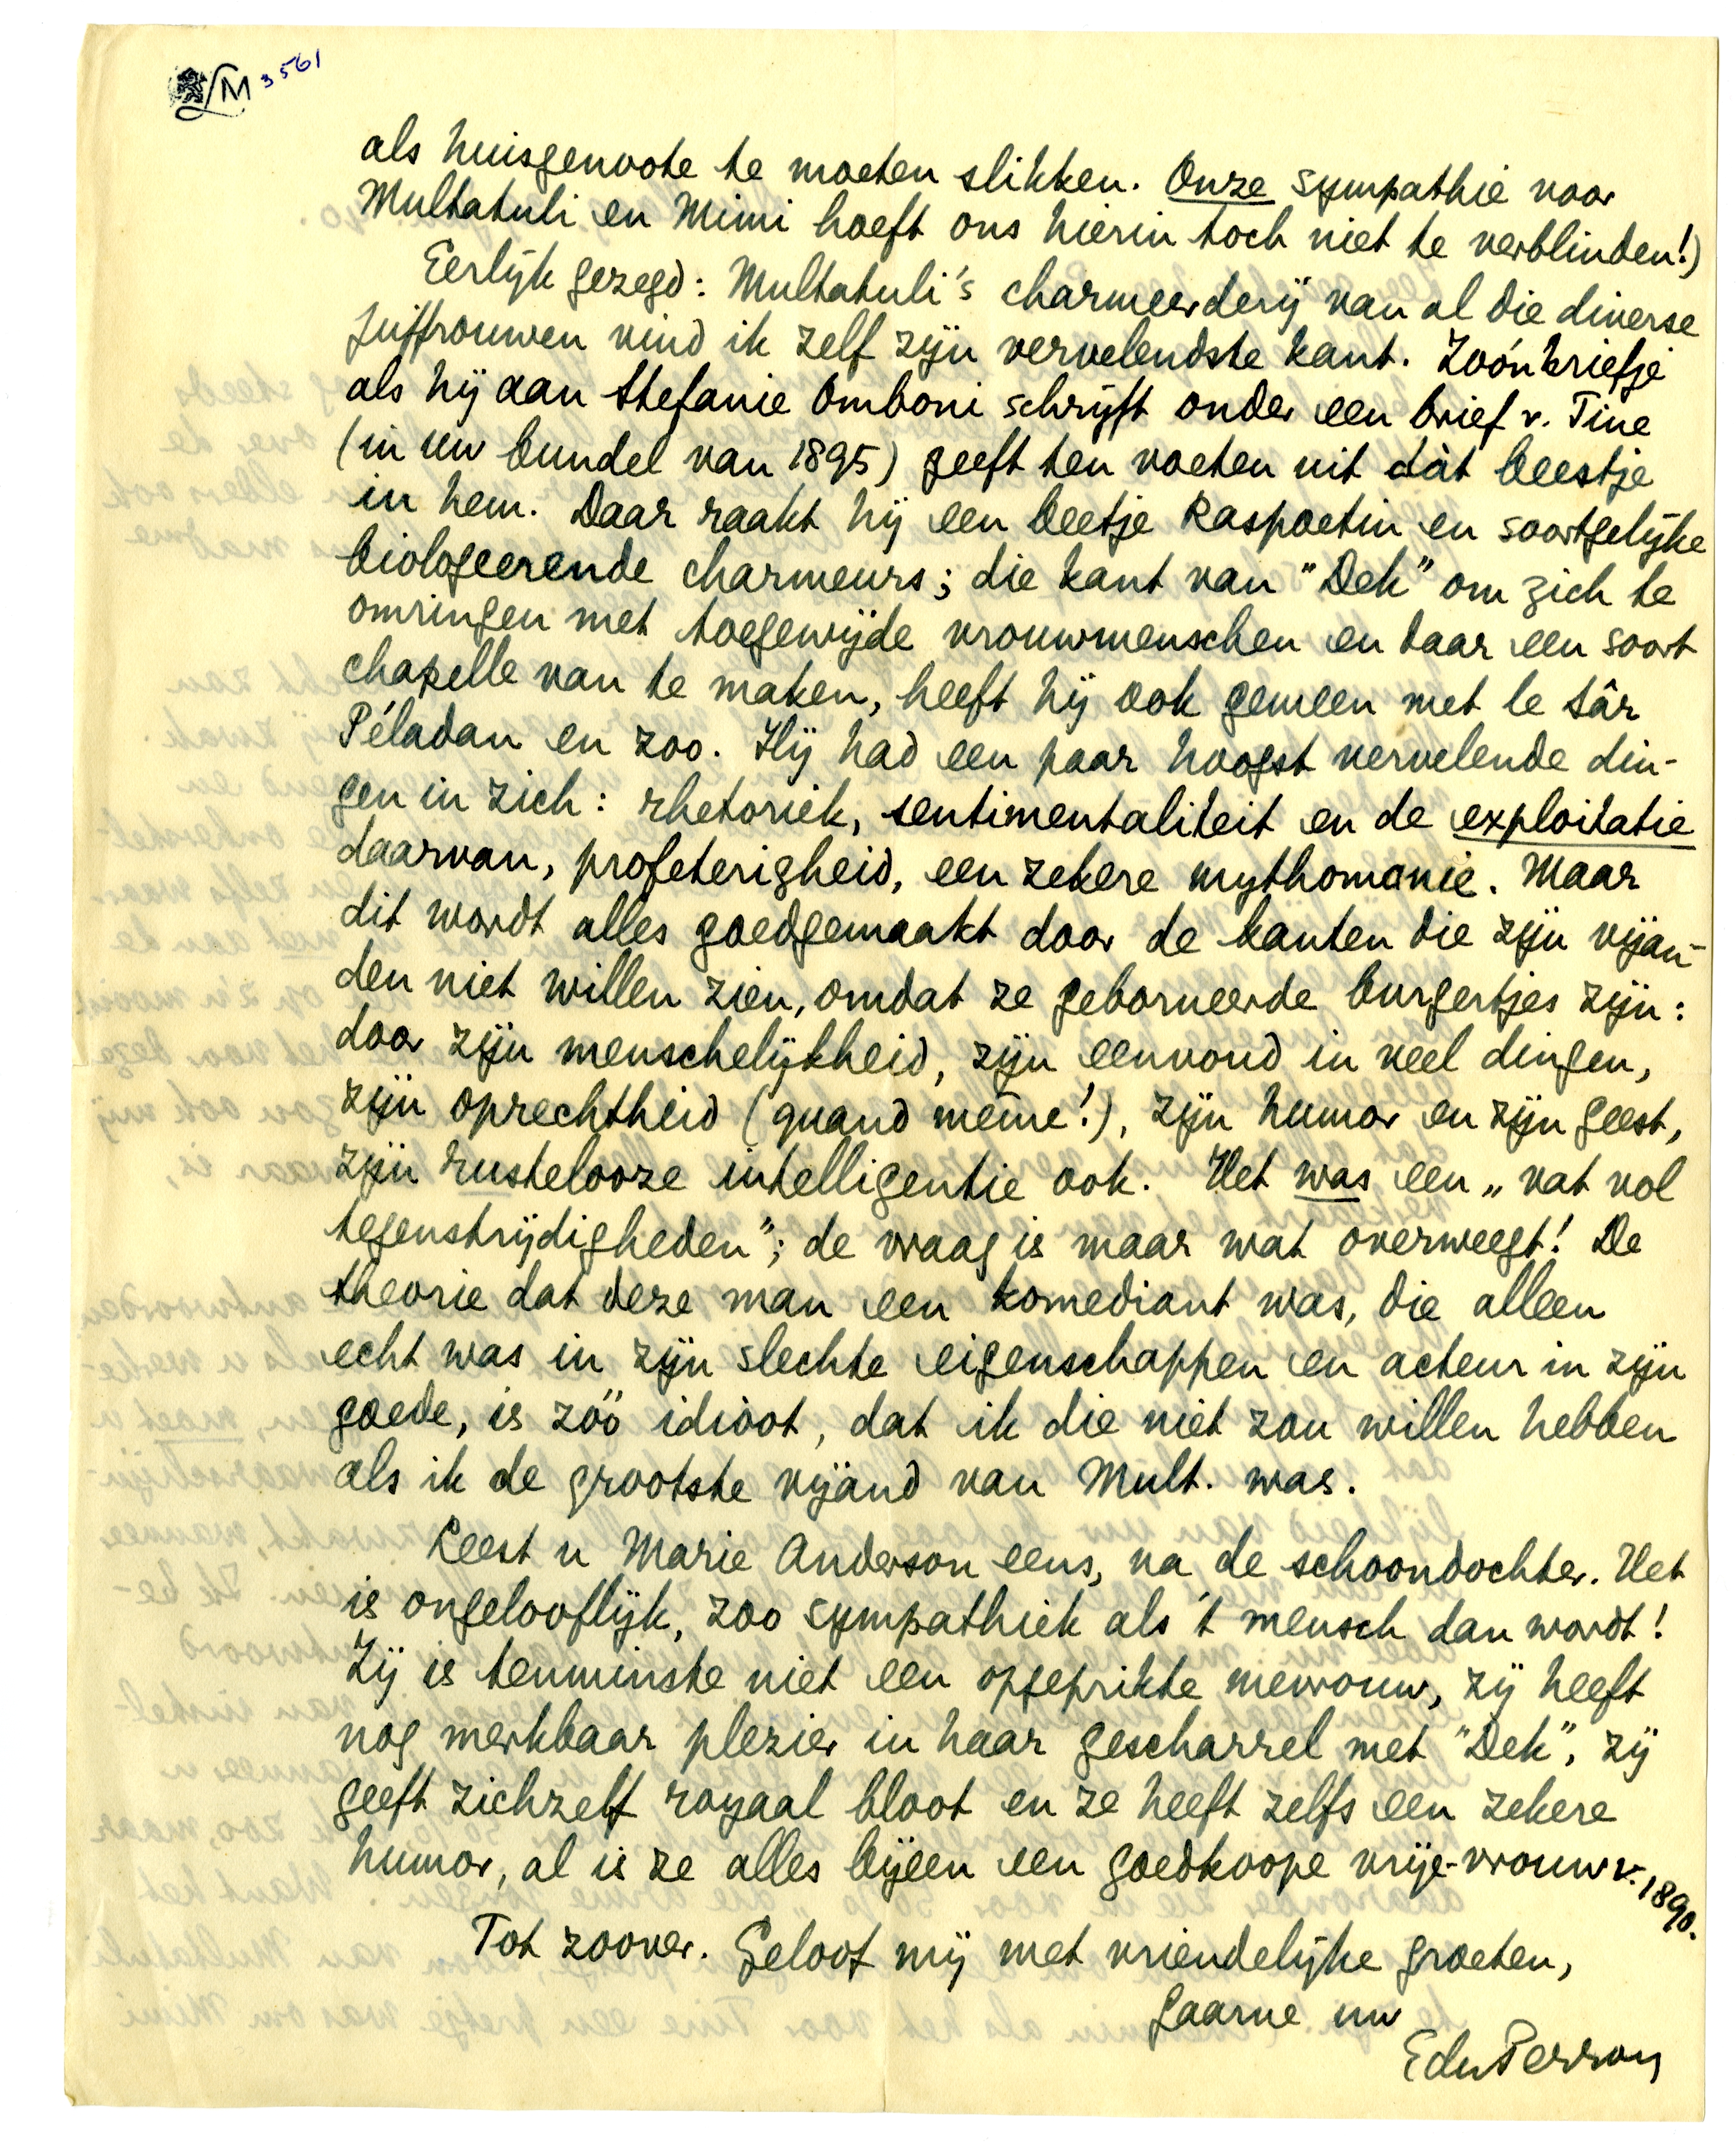 LM 3561
als huisgenoote te moeten slikken. Onze sympathie voor
Multatuli en Mimi hoeft ons hierin toch niet te verblinden!)
Eerlijk gezegd: Multatuli's charmeerderij van al die diverse
juffrouwen vind ik zelf zijn vervelendste kant. Zoo'n briefje
als hij aan Stefanie Omboni schrijft onder een brief v. Tine
(in uw bundel van 1895) geeft ten voeten uit dàt beestje
in hem. Daar raakt hij een beetje Raspoetin en soortgelijke
biologeerende charmeurs; die kant van "Dek" om zich te
omringen met toegewijde vrouwmenschen en daar een soort
chapelle van te maken, heeft hij ook gemeen met le Sâr
Péladan en zoo. Hij had een paar hoogst vervelende din-
gen in zich: rhetoriek, sentimentaliteit en de exploitatie
daarvan, profeterigheid, een zekere mythomanie. Maar
dit wordt alles goedgemaakt door de kanten die zijn vijan-
den niet willen zien, omdat ze geborneerde burgertjes zijn:
door zijn menschelijkheid, zijn eenvoud in veel dingen,
zijn oprechtheid (quand même!), zijn humor en zijn geest,
zijn rustelooze intelligentie ook. Het was een „vat vol
tegenstrijdigheden"; de vraag is maar wat overweegt! De
theorie dat deze man een komediant was, die alleen
echt was in zijn slechte eigenschappen en acteur in zijn
goede, is zóó idioot, dat ik die niet zou willen hebben
als ik de grootste vijand van Mult. was.
Leest u Marie Anderson eens, na de schoondochter. Het
is ongelooflijk, zoo sympathiek als 't mensch dan wordt!
Zij is tenminste niet een opgeprikte mevrouw, zij heeft
nog merkbaar plezier in haar gescharrel met "Dek", zij
geeft zichzelf royaal bloot en ze heeft zelfs een zekere
humor, al is ze alles bijeen een goedkoope vrije-vrouw v. 1890.
Tot zoover. Geloof mij met vriendelijke groeten,
gaarne uw
EduPerron